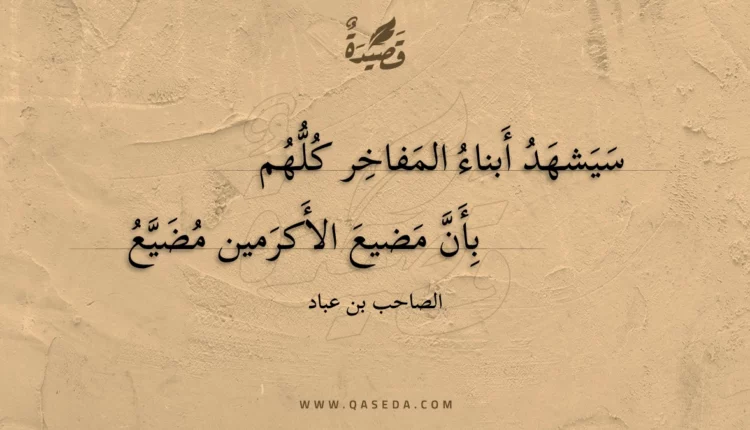 قَصِيْدَةٌ
سَيَشهَدُ أَبناءُ المَفاخِرِ كُلُّهُم
بِأَنَّ مَضيعَ الأَكرَمين مُضَيَّعُ
الصاحب بن عباد
WWW.QASEDA.COM